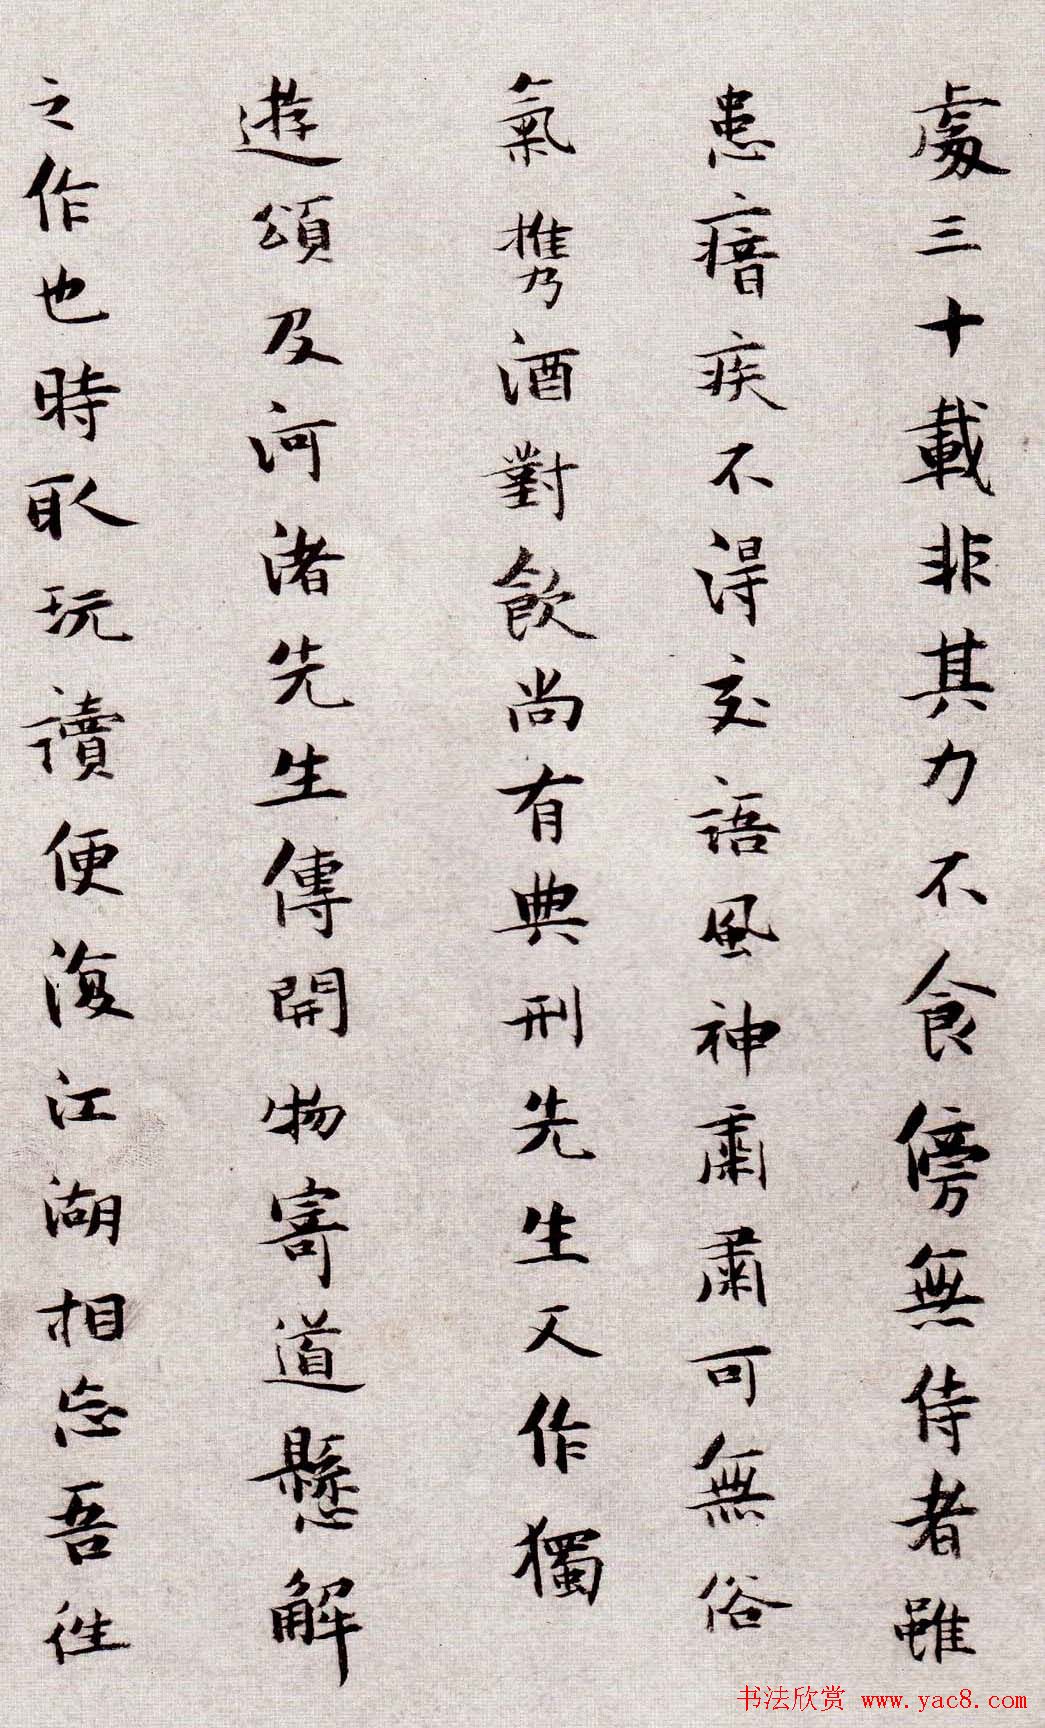 處三十載非其力不食傍無侍者雖
患瘖疾不得交語風神肅肅可無俗
氣攜酒對飲尚有典刑先生又作獨
遊頌及河渚先生傳開物寄道懸解
之作也時取玩讀便復江湖相忘吾往
书法欣赏 www.yac8.com